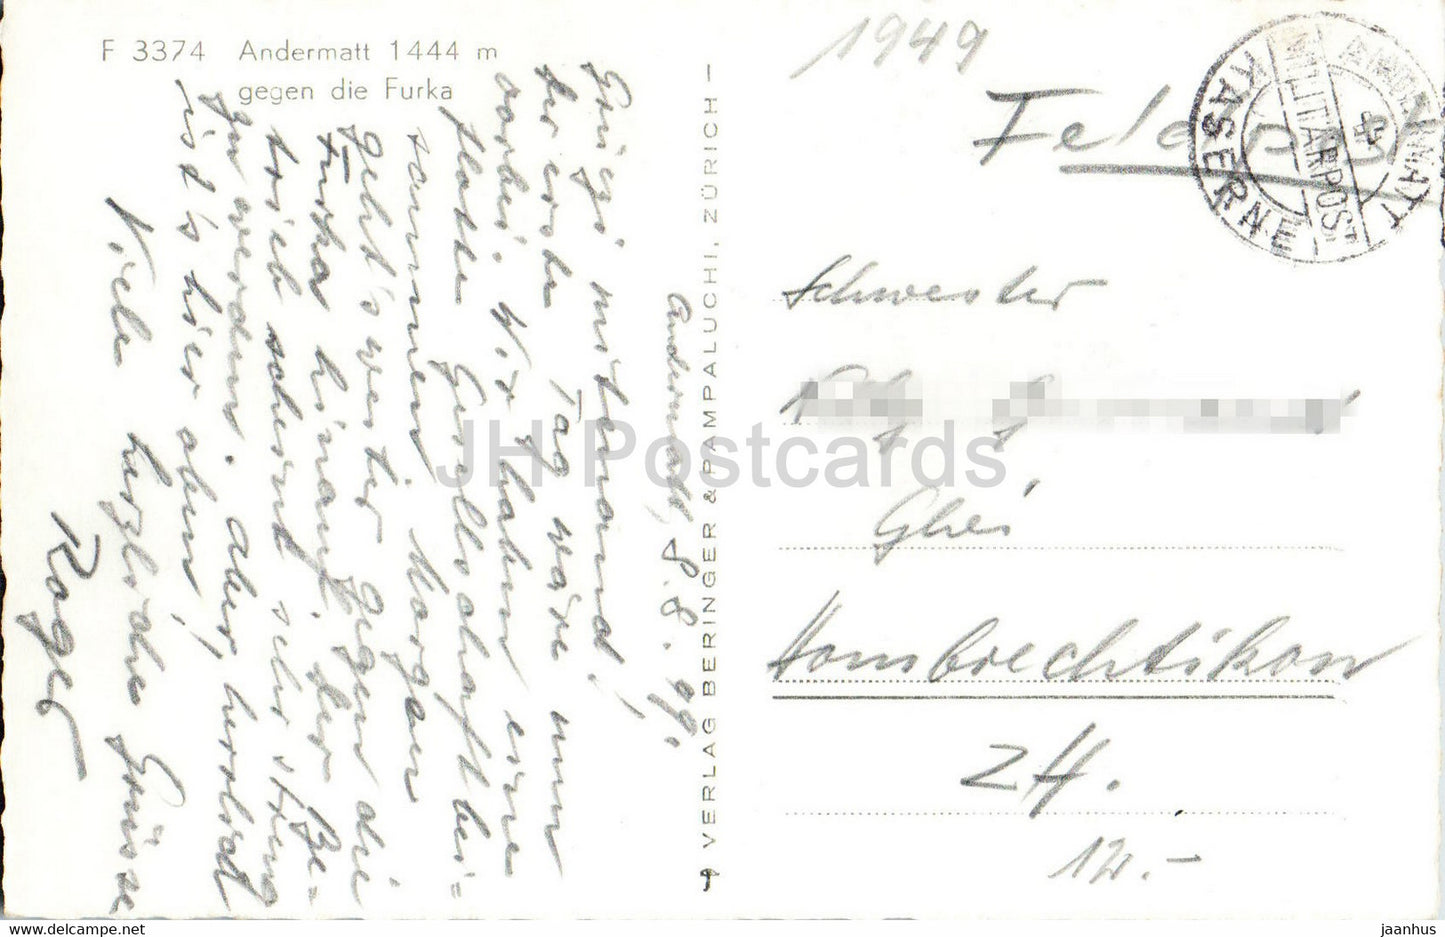 F 3374 Andermatt 1444 m
gegen die Furka
1949
Feldpost
ANDERMATT
MILITÄRPOST
KASERNE
Andermatt, 8.8.49.
Grüezi mitenand!
Der erste Tag wäre nun
vorbei. Wir haben eine
flotte Gesellschaft bei-
sammen. Morgen
geht's weiter gegen die
Furka hinauf. Der Be-
trieb scheint sehr streng
zu werden. Aber herrlich
ist's hier oben!
Viele herzliche Grüsse
VERLAG BERINGER & PAMPALUCHI, ZÜRICH
Schwester
Hombrechtikon
ZH.
12.-
JH Postcards
jaanhus - HipPostcard.com